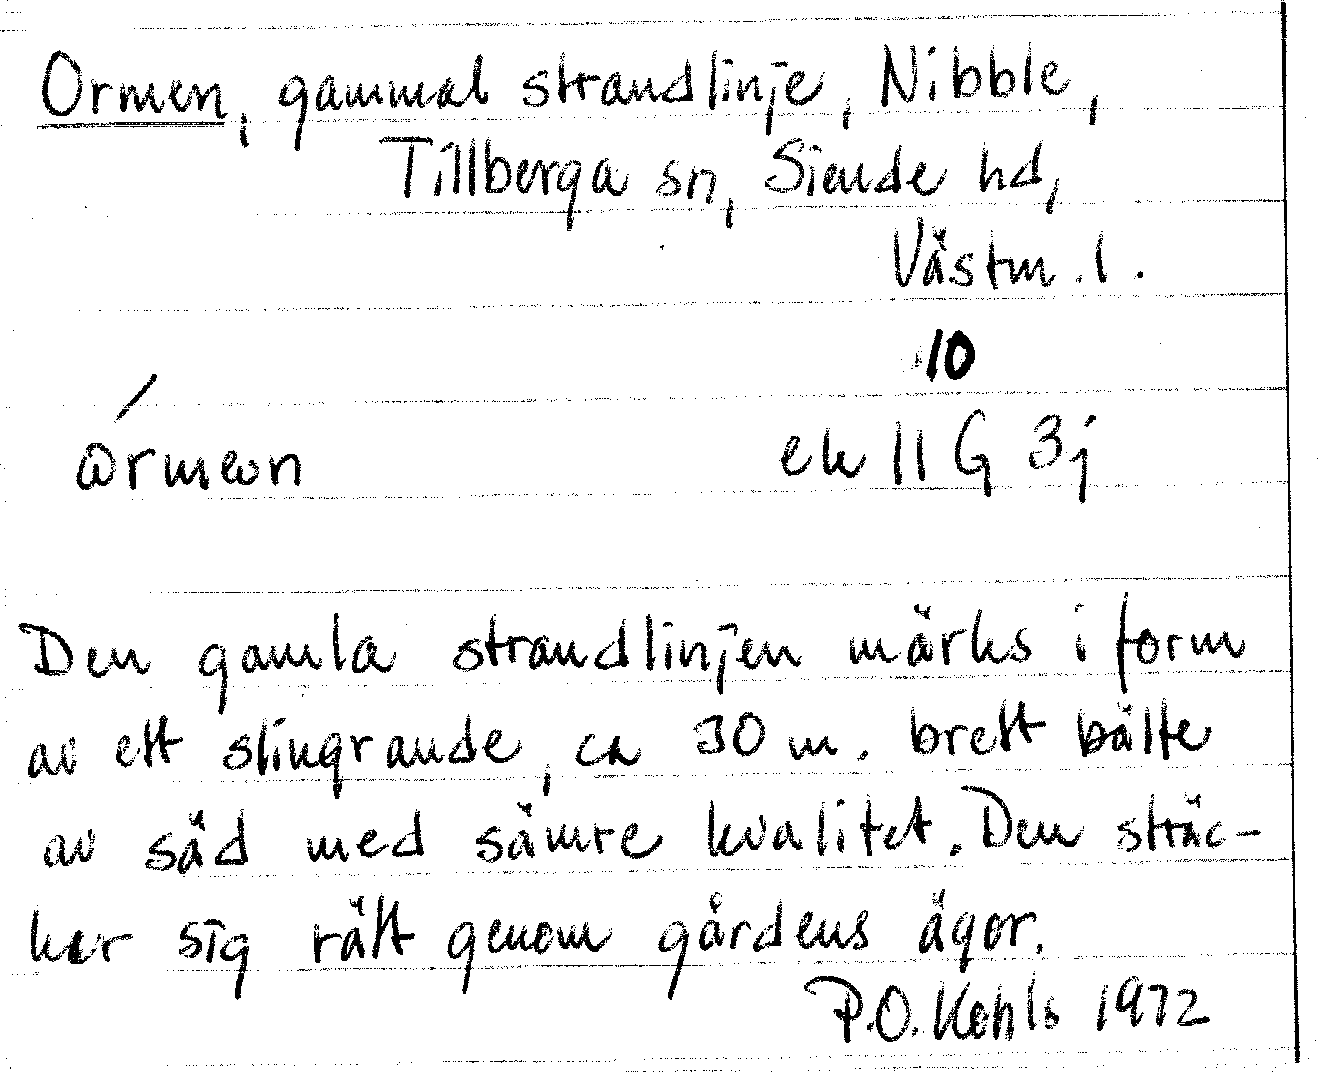 Ormen, gammal strandlinje, Nibble,
Tillberga sn, Siende hd,
Västm. l.
10
ek 11 G 3j
Den gamla strandlinjen märks i form
av ett slingrande, ca 30 m. brett bälte
av säd med sämre kvalitet. Den sträc-
ker sig rätt genom gårdens ägor.
P.O. 1972